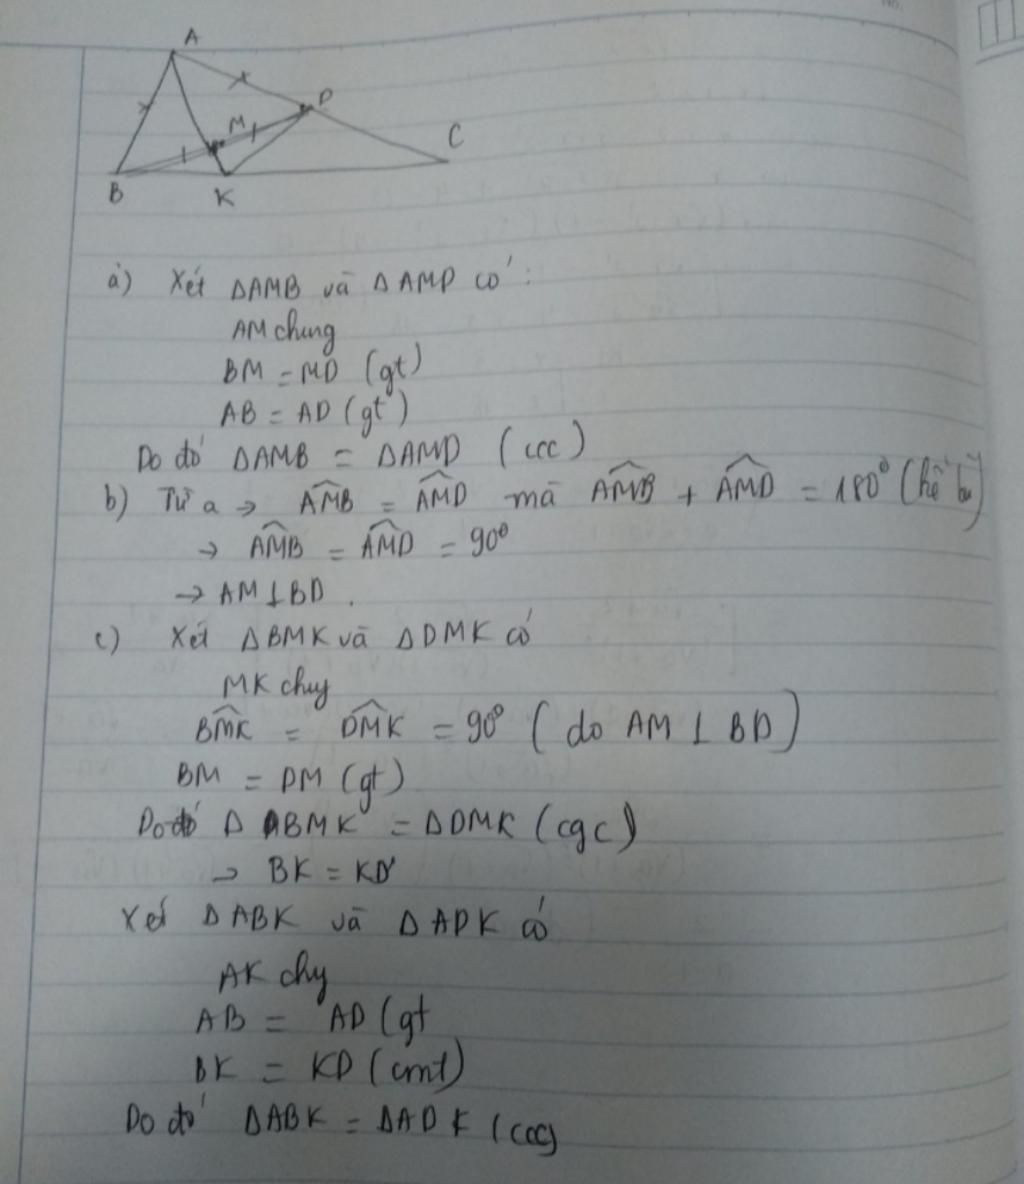 A
D
M
C
B
K
a) Xét ΔAMB và ΔAMD có:
AM chung
BM = MD (gt)
AB = AD (gt)
Do đó ΔAMB = ΔAMD (ccc)
b) Từ a → \widehat{AMB} = \widehat{AMD} mà \widehat{AMB} + \widehat{AMD} = 180° (kề bù)
→ \widehat{AMB} = \widehat{AMD} = 90°
→ AM ⊥ BD.
c) Xét ΔBMK và ΔDMK có
MK chug
\widehat{BMK} = \widehat{DMK} = 90° (do AM ⊥ BD)
BM = DM (gt)
Do đó Δ BMK = ΔDMK (cgc)
→ BK = KD
Xét ΔABK và ΔADK có
AK chg
AB = AD (gt
BK = KD (cmt)
Do đó ΔABK = ΔADK (ccc)